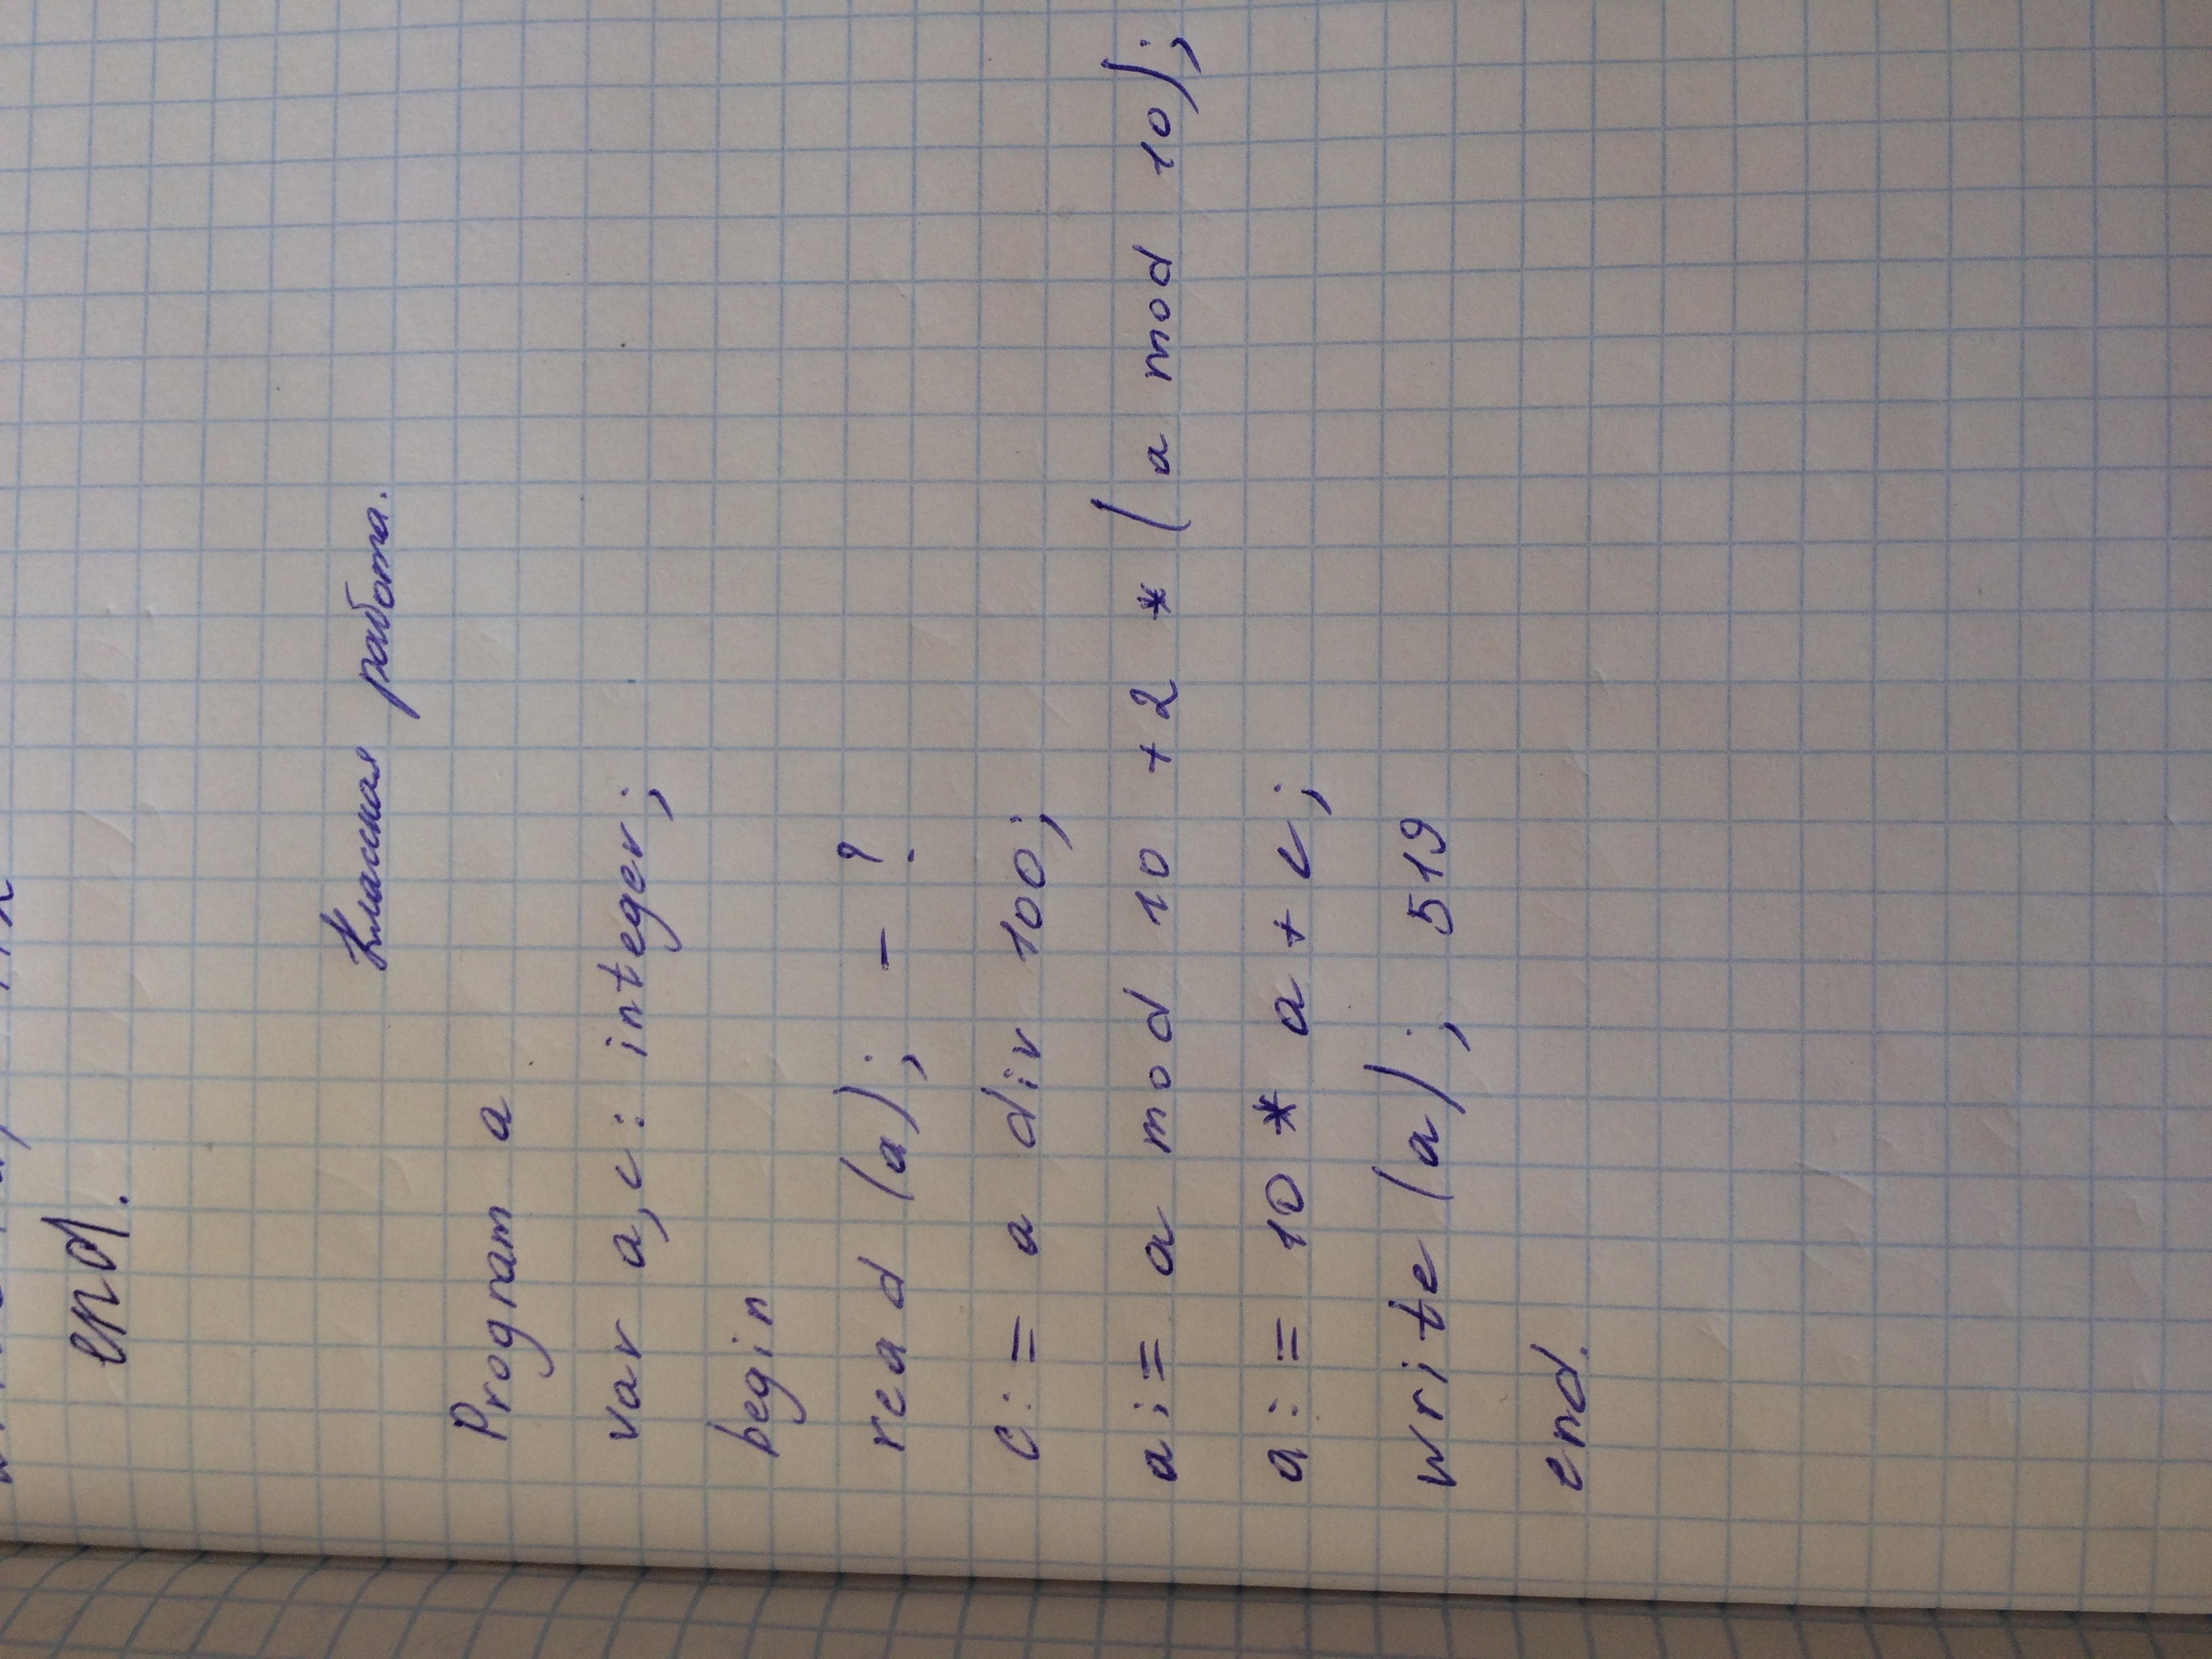 end.
Классная работа.
Program a
var a, c: integer;
begin
read (a); - ?
c:= a div 100;
a:= a mod 10 + 2 * (a mod 10);
a:= 10 * a + c;
write (a); 519
end.